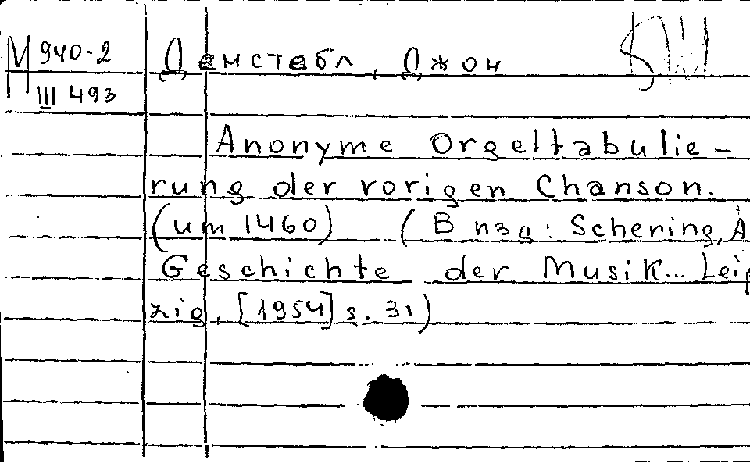 М 940-2
III 493
Данстабл, Джон
Anonyme Orgeltabulie-
rung der vorigen Chanson.
(um 1460) (В изд: Schering, A
Geschichte der Musik... Leip
zig, [1954] s. 31)